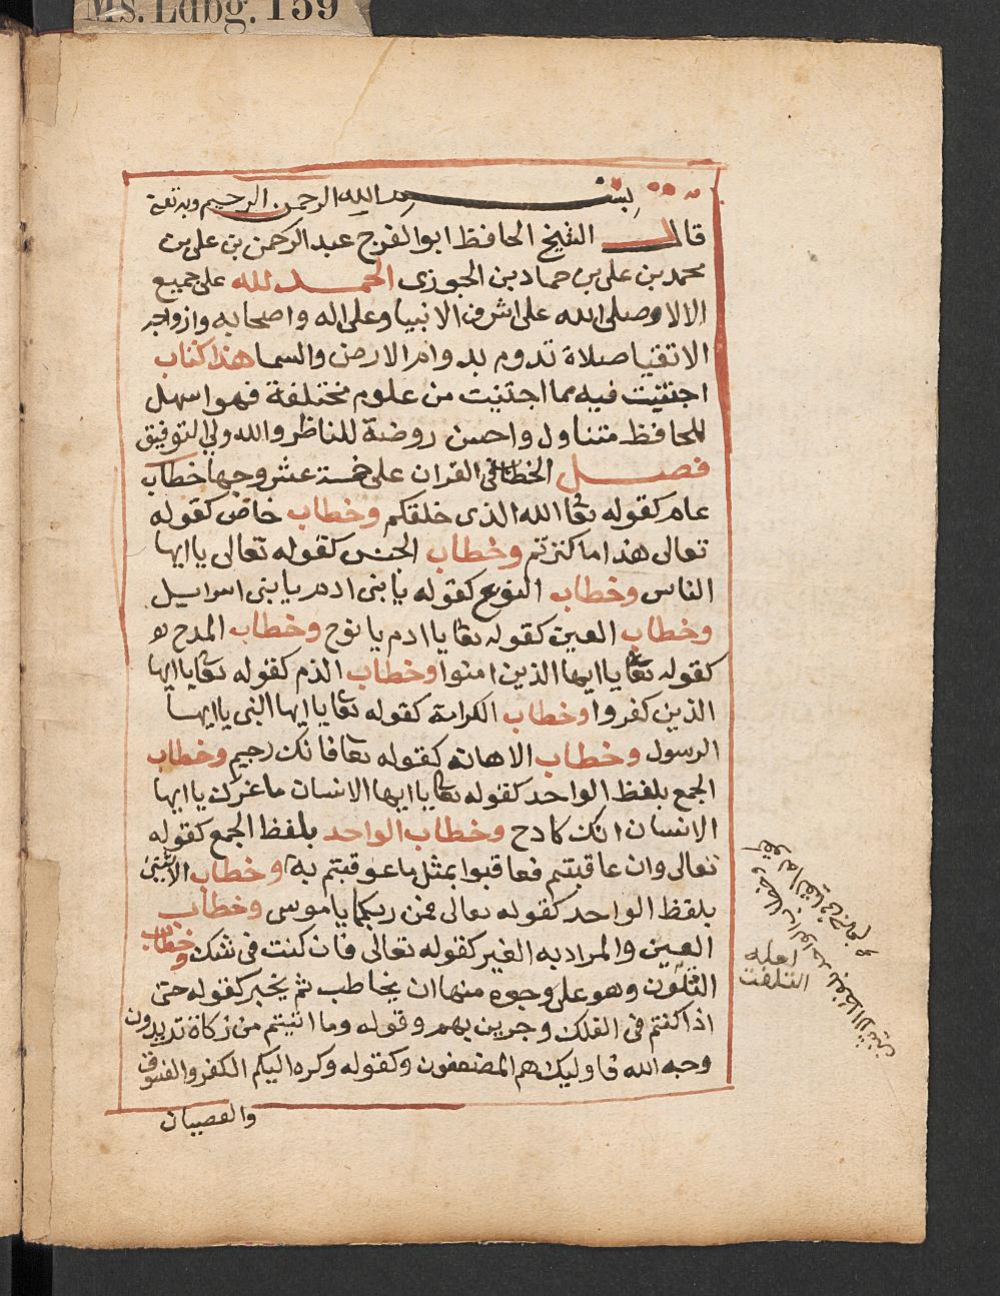 Ms. Ldbg. 159
بسم الله الرحمن الرحيم وبه ثقتي
قال الشيخ الحافظ ابو الفرج عبد الرحمن بن على بن
محمد بن على بن حماد بن الجوزى الحمد لله على جميع
الالا وصلى الله على اشرف الانبيا وعلى اله واصحابه وازواجه
الاتقيا صلاة تدوم بدوام الارض والسما هذا كتاب
اجتنيت فيه مما اجتنيت من علوم مختلفة فهو اسهل
للحافظ متناول واحسن روضة للناظر والله ولي التوفيق
فصل الخطاب فى القران على خمسة عشر وجها خطاب
عام كقوله تعا الله الذى خلقكم وخطاب خاص كقوله
تعالى هذا ما كنزتم وخطاب الجنس كقوله تعالى يا ايها
الناس وخطاب النوع كقوله يا بنى ادم يا بنى اسراييل
وخطاب العين كقوله تعا يا ادم يا نوح وخطاب المدح
كقوله تعا يا ايها الذين امنوا وخطاب الذم كقوله تعا يا ايها
الذين كفروا وخطاب الكرامة كقوله تعا يا ايها النبى يا ايها
الرسول وخطاب الاهانة كقوله تعا فانك رجيم وخطاب
الجمع بلفظ الواحد كقوله تعا يا ايها الانسان ما غرك يا ايها
الانسان انك كادح وخطاب الواحد بلفظ الجمع كقوله
تعالى وان عاقبتم فعاقبوا بمثل ما عوقبتم به وخطاب الاثنين
بلفظ الواحد كقوله تعالى فمن ربكما يا موسى وخطاب
العين والمراد به الغير كقوله تعالى فان كنت فى شك وخطاب
التلون وهو على وجوه منها ان يخاطب ثم يخبر كقوله حتى
اذا كنتم فى الفلك وجرين بهم وقوله وما اتيتم من زكاة تريدون
وجه الله فاوليك هم المضعفون وكقوله وكره اليكم الكفر والفسوق
والعصيان
وخطاب الواحد بلفظ الاثنين
كقوله القيا فى جهنم
لعله
التلفت